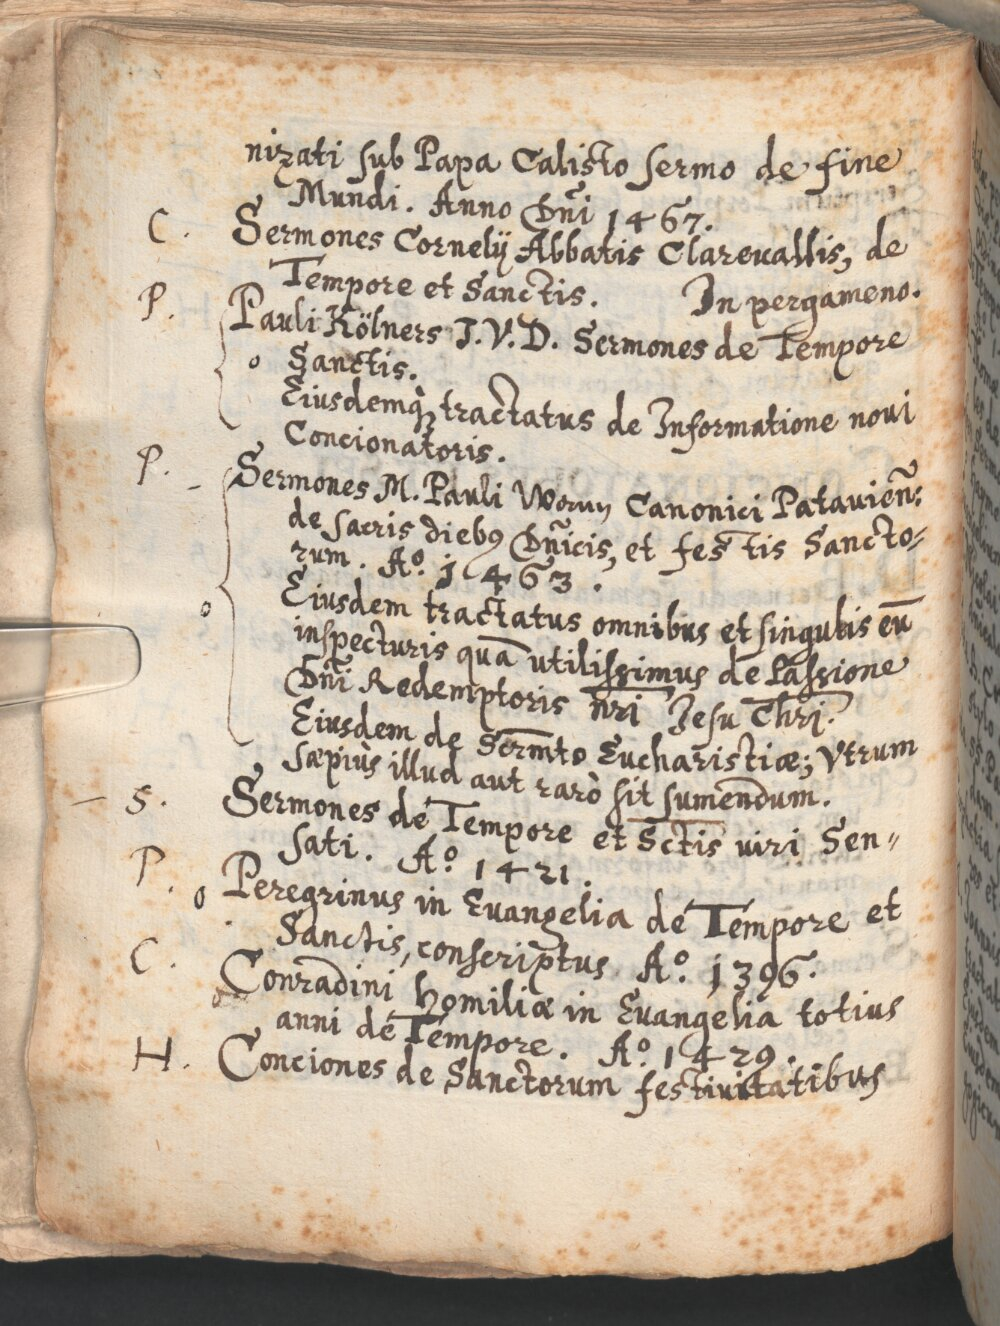 nizati sub Papa Calisto sermo de fine
Mundi. Anno Dñi 1467.
C. Sermones Cornelÿ Abbatis Clareuallis, de
Tempore et Sanctis. In pergameno.
P. Pauli Kölners J.V.D. Sermones de Tempore
o Sanctis.
Eiusdemq́ tractatus de Informatione noui
Concionatoris.
P. - Sermones M. Pauli Worun Canonici Patauien̄:
de sacris diebꝯ Dñicis, et festis Sancto-
rum. Aº. 1463.
o Eiusdem tractatus omnibus et singulis eū
inspecturis quā utilissimus de Passione
Dñi Redemptoris n̄ri Jesu Chr̄i.
Eiusdem de Sc̄rm̄to Eucharistiæ; Vtrum
sæpiùs illud aut rarò sit sumendum.
- S. Sermones de Tempore et Sc̄tis uiri Sen-
sati. Aº. 1421.
P. o Peregrinus in Euangelia de Tempore et
Sanctis, conscriptus Aº. 1396.
C. o Conradini homiliæ in Euangelia totius
anni de Tempore. Aº 1429.
H. Conciones de Sanctorum festiuitatibus